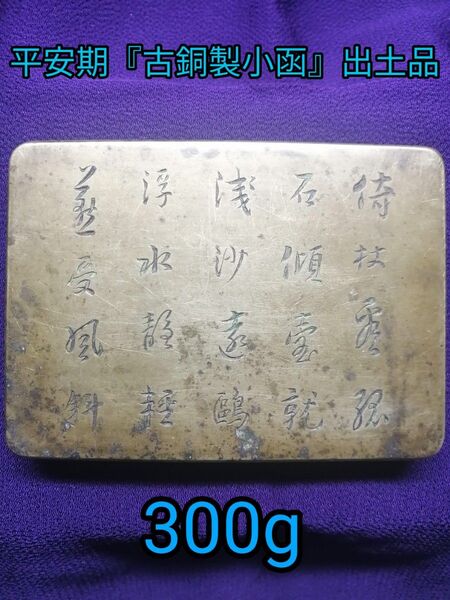 平安期『古銅製小函』出土品
倚杖看孤
石傾壺就
淺沙遠鷗
浮水静輕
燕受風斜
300g